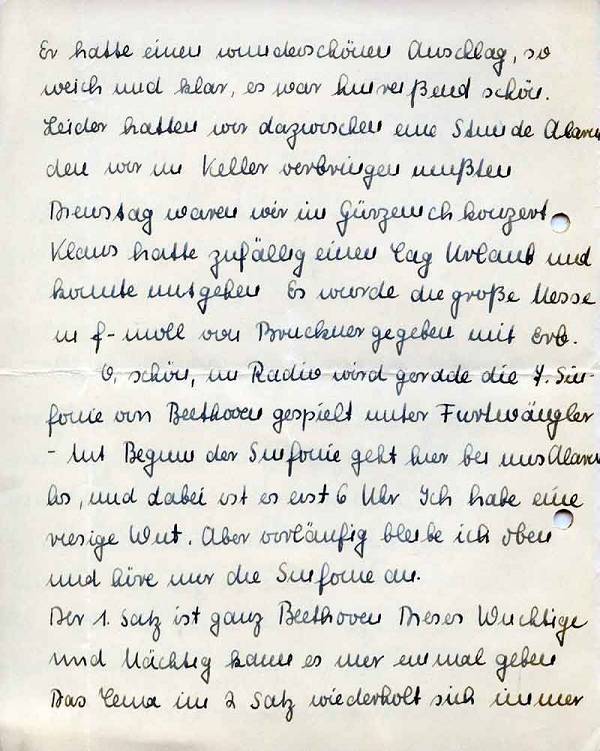 Er hatte einen wunderschönen Anschlag, so
weich und klar, es war hinreißend schön.
Leider hatten wir dazwischen eine Stunde Alarm
den wir im Keller verbringen mußten
Dienstag waren wir im Gürzenichkonzert
Klaus hatte zufällig einen Tag Urlaub und
konnte mitgehen Es wurde die große Messe
in f-moll von Bruckner gegeben mit Erb.
O, schön, im Radio wird gerade die 7. Sin-
fonie von Beethoven gespielt unter Furtwängler
- Mit Beginn der Sinfonie geht hier bei uns Alarm
los, und dabei ist es erst 6 Uhr Ich habe eine
riesige Wut. Aber vorläufig bleibe ich oben
und höre mir die Sinfonie an.
Der 1. Satz ist ganz Beethoven Dieses Wuchtige
und Mächtig kann es nur einmal geben
Das Tema im 2 Satz wiederholt sich immer